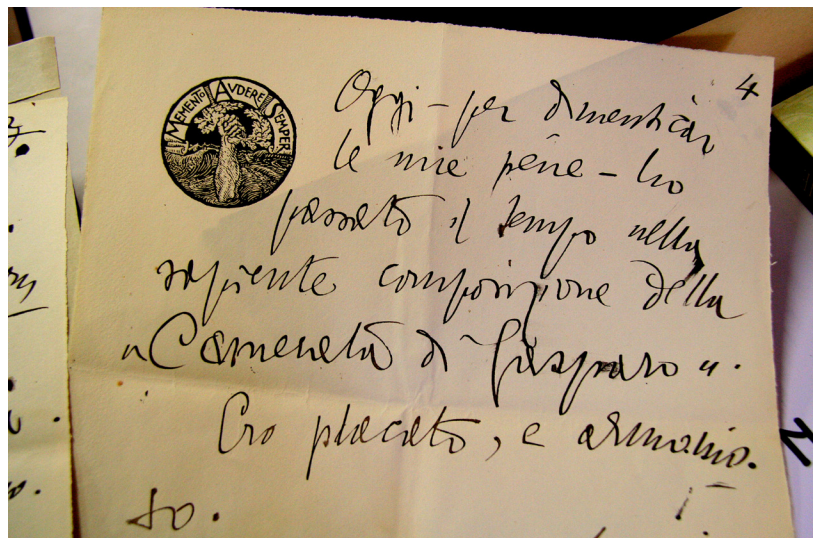 4
MEMENTO AVDERE SEMPER
Oggi – per dimenticar
le mie pene – ho
passato il tempo nella
sapiente composizione della
"Camerata di Gasparo".
Ero placato, e armonio-
so.